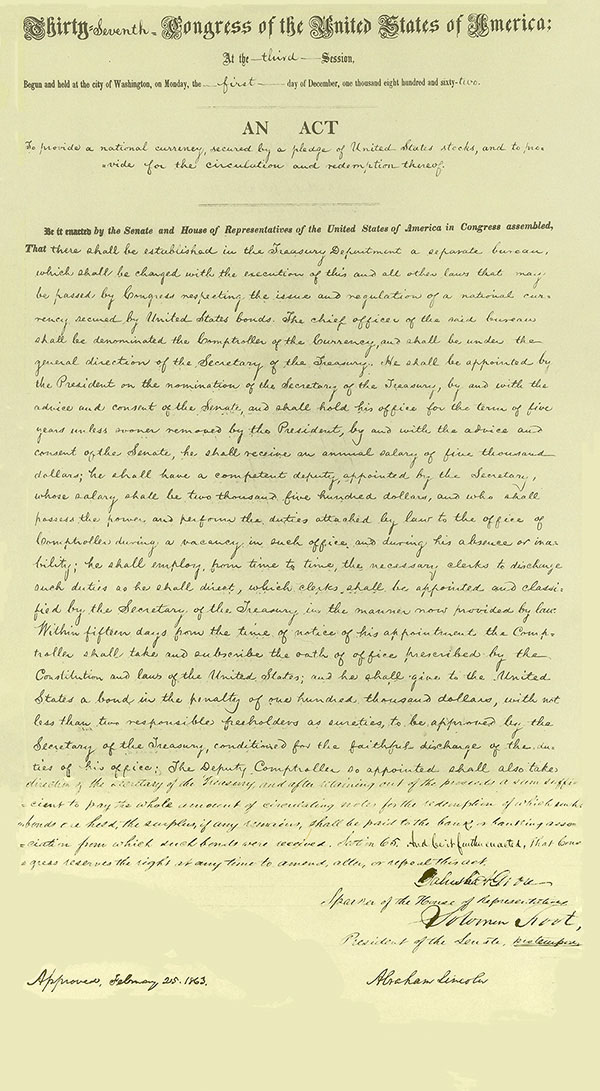 Thirty-Seventh Congress of the United States of America;
At the third Session,
Begun and held at the city of Washington, on Monday, the first day of December, one thousand eight hundred and sixty-two.
AN ACT
To provide a national currency, secured by a pledge of United States stocks, and to pro-
-vide for the circulation and redemption thereof.
Be it enacted by the Senate and House of Representatives of the United States of America in Congress assembled,
That there shall be established in the Treasury Department a separate bureau,
which shall be charged with the execution of this and all other laws that may
be passed by Congress respecting the issue and regulation of a national cur-
rency secured by United States bonds. The chief officer of the said bureau
shall be denominated the Comptroller of the Currency, and shall be under the
general direction of the Secretary of the Treasury. He shall be appointed by
the President on the nomination of the Secretary of the Treasury, by and with the
advice and consent of the Senate, and shall hold his office for the term of five
years unless sooner removed by the President, by and with the advice and
consent of the Senate, he shall receive an annual salary of five thousand
dollars; he shall have a competent deputy, appointed by the Secretary,
whose salary shall be two thousand five hundred dollars, and who shall
possess the power and perform the duties attached by law to the office of
Comptroller during a vacancy in such office and during his absence or ina-
bility; he shall employ, from time to time, the necessary clerks to discharge
such duties as he shall direct, which clerks shall be appointed and classi-
fied by the Secretary of the Treasury in the manner now provided by law.
Within fifteen days from the time of notice of his appointment the Comp-
troller shall take and subscribe the oath of office prescribed by the
Constitution and laws of the United States; and he shall give to the United
States a bond in the penalty of one hundred thousand dollars, with not
less than two responsible freeholders as sureties, to be approved by the
Secretary of the Treasury, conditioned for the faithful discharge of the du-
ties of his office; The Deputy Comptroller so appointed shall also take
direction of the secretary of the Treasury, and after retaining out of the proceeds a sum suffi-
-cient to pay the whole amount of circulating notes for the redemption of which such
bonds are held, the surplus, if any remains, shall be paid to the bank, or banking asso
-ciation from which such bonds were received. Section 65. And be it further enacted, That Con-
-gress reserves the right at any time to amend, alter, or repeal this act.
Galusha A Grow
Speaker of the House of Representatives
Solomon Foot,
President of the Senate, pro tempore
Approved, February 25. 1863.
Abraham Lincoln